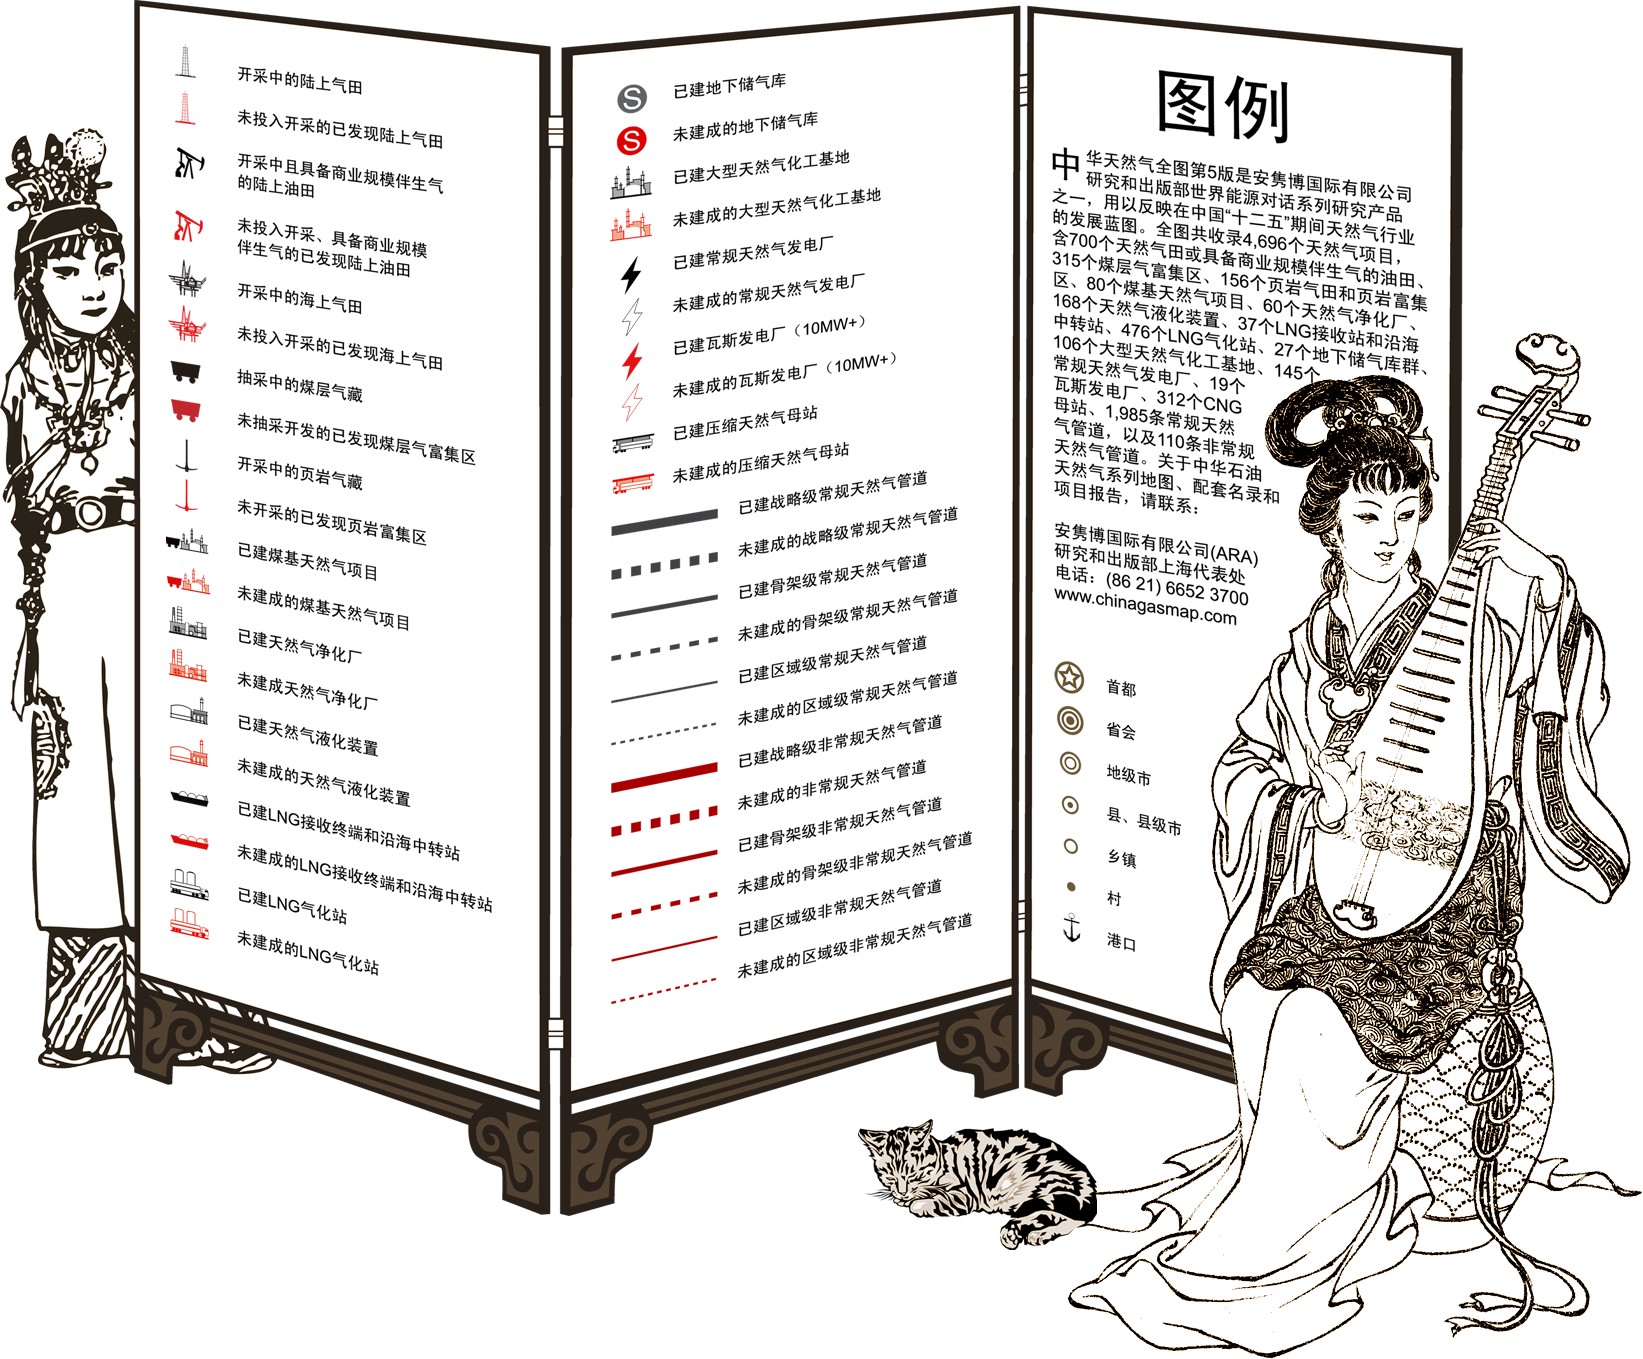 开采中的陆上气田
未投入开采的已发现陆上气田
开采中且具备商业规模伴生气
的陆上油田
未投入开采、具备商业规模
伴生气的已发现陆上油田
开采中的海上气田
未投入开采的已发现海上气田
抽采中的煤层气藏
未抽采开发的已发现煤层气富集区
开采中的页岩气藏
未开采的已发现页岩富集区
已建煤基天然气项目
未建成的煤基天然气项目
已建天然气净化厂
未建成天然气净化厂
已建天然气液化装置
未建成的天然气液化装置
已建LNG接收终端和沿海中转站
未建成的LNG接收终端和沿海中转站
已建LNG气化站
未建成的LNG气化站
S 已建地下储气库
S 未建成的地下储气库
已建大型天然气化工基地
未建成的大型天然气化工基地
已建常规天然气发电厂
未建成的常规天然气发电厂
已建瓦斯发电厂（10MW+）
未建成的瓦斯发电厂（10MW+）
已建压缩天然气母站
未建成的压缩天然气母站
已建战略级常规天然气管道
未建成的战略级常规天然气管道
已建骨架级常规天然气管道
未建成的骨架级常规天然气管道
已建区域级常规天然气管道
未建成的区域级常规天然气管道
已建战略级非常规天然气管道
未建成的非常规天然气管道
已建骨架级非常规天然气管道
未建成的骨架级非常规天然气管道
已建区域级非常规天然气管道
未建成的区域级非常规天然气管道
图例
中华天然气全图第5版是安隽博国际有限公司
研究和出版部世界能源对话系列研究产品
之一，用以反映在中国“十二五”期间天然气行业
的发展蓝图。全图共收录4,696个天然气项目，
含700个天然气田或具备商业规模伴生气的油田、
315个煤层气富集区、156个页岩气田和页岩富集
区、80个煤基天然气项目、60个天然气净化厂、
168个天然气液化装置、37个LNG接收站和沿海
中转站、476个LNG气化站、27个地下储气库群、
106个大型天然气化工基地、145个
常规天然气发电厂、19个
瓦斯发电厂、312个CNG
母站、1,985条常规天然
气管道，以及110条非常规
天然气管道。关于中华石油
天然气系列地图、配套名录和
项目报告，请联系：
安隽博国际有限公司(ARA)
研究和出版部上海代表处
电话：(86 21) 6652 3700
www.chinagasmap.com
首都
省会
地级市
县、县级市
乡镇
村
港口